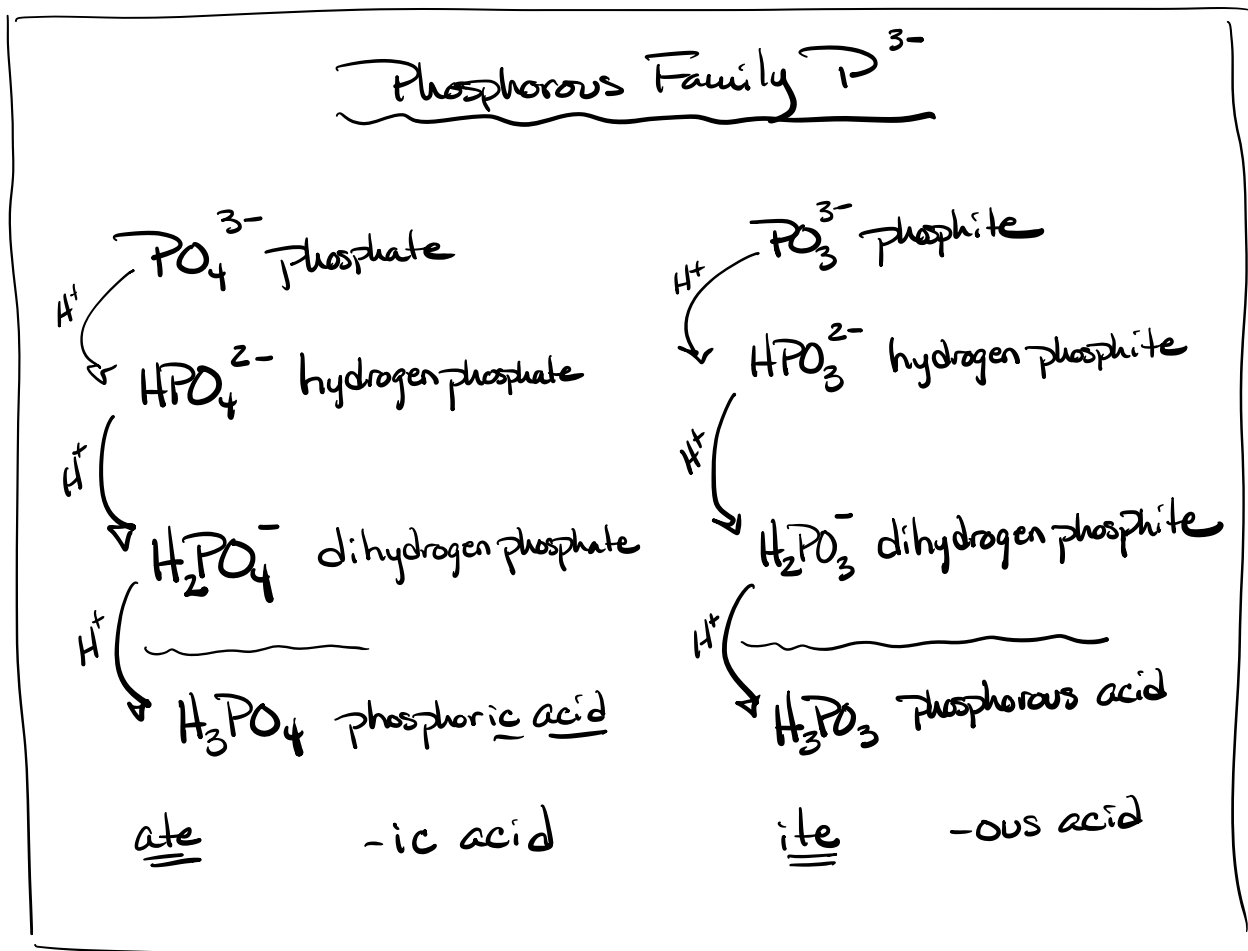 Phosphorous Family P³⁻
PO₄³⁻ phosphate
H⁺
HPO₄²⁻ hydrogen phosphate
H⁺
H₂PO₄⁻ dihydrogen phosphate
H⁺
H₃PO₄ phosphoric acid
ate -ic acid
PO₃³⁻ phosphite
H⁺
HPO₃²⁻ hydrogen phosphite
H⁺
H₂PO₃⁻ dihydrogen phosphite
H⁺
H₃PO₃ phosphorous acid
ite -ous acid